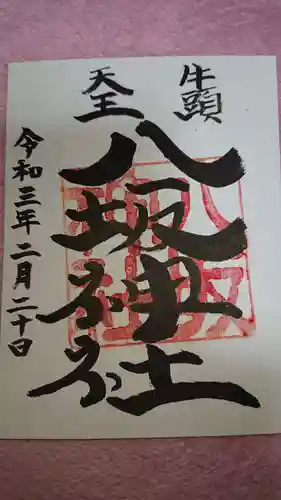 牛頭
天王
八坂神社
令和三年二月二十日